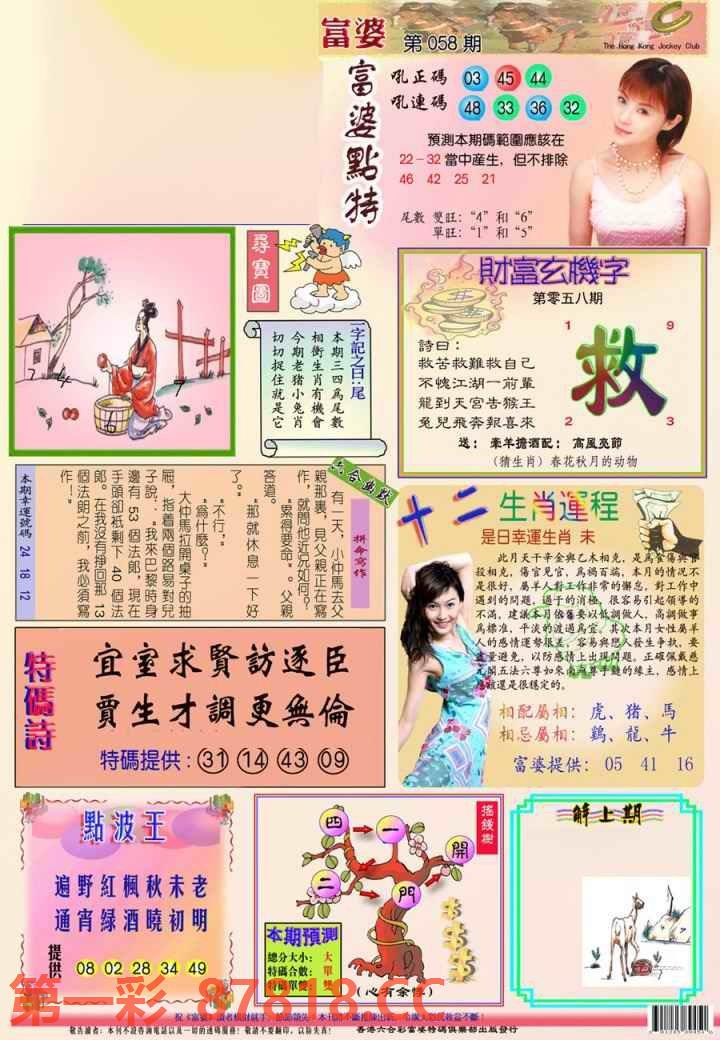 富婆 第 058 期
The Hong Kong Jockey Club
富婆點特
吼正碼 03 45 44
吼連碼 48 33 36 32
預測本期碼範圍應該在
22－32 當中産生，但不排除
46 42 25 21
尾數 雙旺：“4”和“6”
單旺：“1”和“5”
尋寶圖
一字記之曰：尾
本期三四為尾數
相衝生肖有機會
今期老猪小兔肖
切切捉住就是它
財富玄機字
第零五八期
1 9
救
2 3
詩曰：
救苦救難救自己
不愧江湖一前輩
龍到天宮告猴王
兔兒飛奔報喜來
送：牽羊擔酒配：高風亮節
（猜生肖）春花秋月的动物
六合幽默
拼命寫作
有一天，小仲馬去父
親那裏，見父親正在寫
作，就問他近況如何？
“累得要命”。父親
答道。
“那就休息一下好
了。”
“不行，”
“爲什麼？”
大仲馬拉開桌子的抽
屜，指着兩個路易對兒
子說：“我來巴黎時身
邊有 53 個法郎，現在
手頭卻衹剩下 40 個法
郎。在我沒有掙回那 13
個法朗之前，我必須寫
作！”
本期幸運號碼 24 18 12
十二生肖運程
是日幸運生肖 未
此月天干辛金與乙木相克，是爲食傷與官
殺相克，傷官見官，爲禍百端，本月的情况不
是很好，屬羊人對工作非常的懈怠，對工作中
遇到的問題，過于的消極，很容易引起領導的
不滿，建議本月依舊要以低調做人，高調做事
爲標准，平淡的渡過爲宜。其次本月女性屬羊
人的感情運勢很差，容易與戀人發生爭執，要
盡量避免，以防感情上出現問題。正確佩戴慈
元閣五法六尊如來南無尊手鏈的緣主，感情上
應該還是很穩定的。
相配屬相：虎、猪、馬
相忌屬相：鷄、龍、牛
富婆提供：05 41 16
特碼詩
宜室求賢訪逐臣
賈生才調更無倫
特碼提供：31 14 43 09
點波王
遍野紅楓秋未老
通宵綠酒曉初明
提供 08 02 28 34 49
搖錢樹
四 一 開
二 門
本期預測
總分大小：大
特碼合數：單
特碼單雙：雙
（心有余悸）
解上期
第一彩 87818.CC
敬告讀者：本刊不設咨詢電話以及一切的透碼服務！敬請不要翻印，以防失真！
香港六合彩富婆特碼俱樂部出版發行